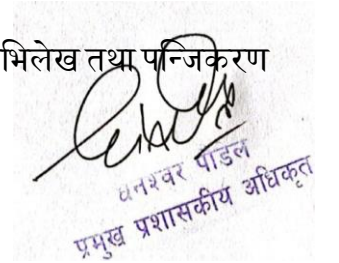 भिलेख तथा पन्जिकरण
धनेश्वर पौडेल
प्रमुख प्रशासकीय अधिकृत